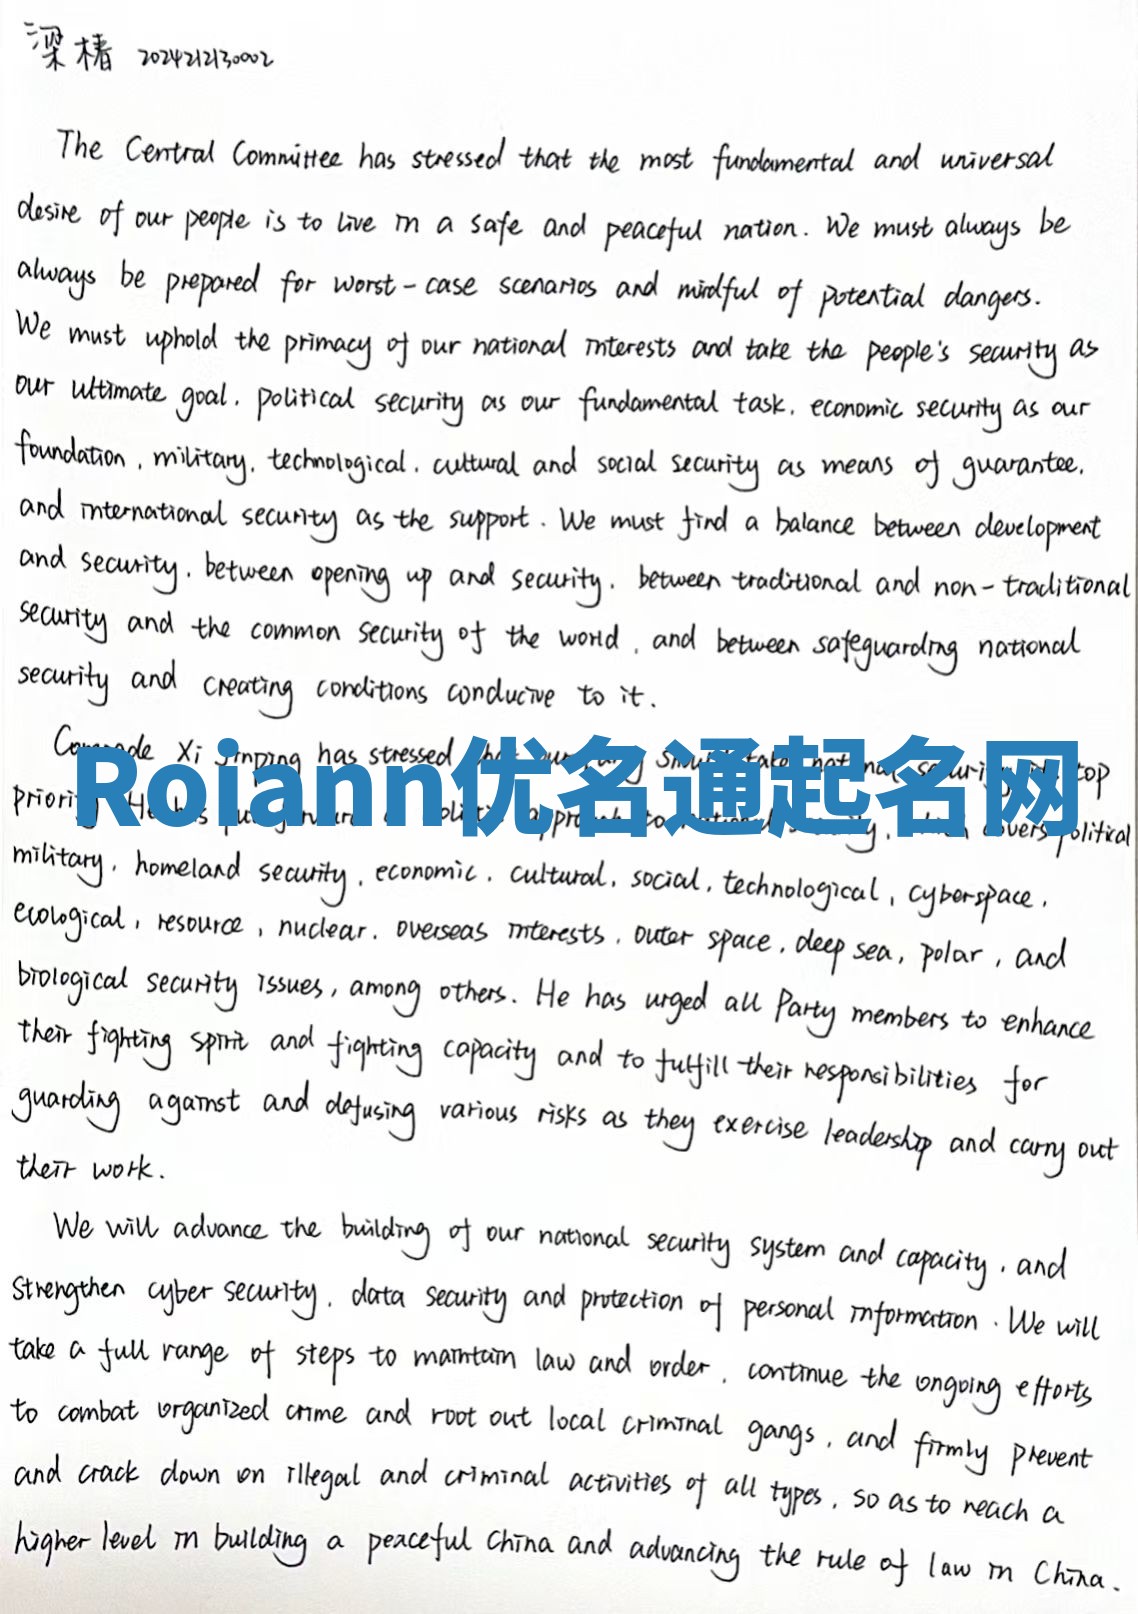 梁椿 2024212130002
The Central Committee has stressed that the most fundamental and universal
desire of our people is to live in a safe and peaceful nation. We must always be
always be prepared for worst-case scenarios and mindful of potential dangers.
We must uphold the primacy of our national interests and take the people's security as
our ultimate goal, political security as our fundamental task, economic security as our
foundation, military, technological, cultural and social security as means of guarantee,
and international security as the support. We must find a balance between development
and security, between opening up and security, between traditional and non-traditional
security and the common security of the world, and between safeguarding national
security and creating conditions conducive to it.
Xi Jinping has stressed top
Roiann优名通起名网
political
military, homeland security, economic, cultural, social, technological, cyberspace,
ecological, resource, nuclear, overseas interests, outer space, deep sea, polar, and
biological security issues, among others. He has urged all Party members to enhance
their fighting spirit and fighting capacity and to fulfill their responsibilities for
guarding against and defusing various risks as they exercise leadership and carry out
their work.
We will advance the building of our national security system and capacity, and
strengthen cyber security, data security and protection of personal information. We will
take a full range of steps to maintain law and order, continue the ongoing efforts
to combat organized crime and root out local criminal gangs, and firmly prevent
and crack down on illegal and criminal activities of all types, so as to reach a
higher level in building a peaceful China and advancing the rule of law in China.